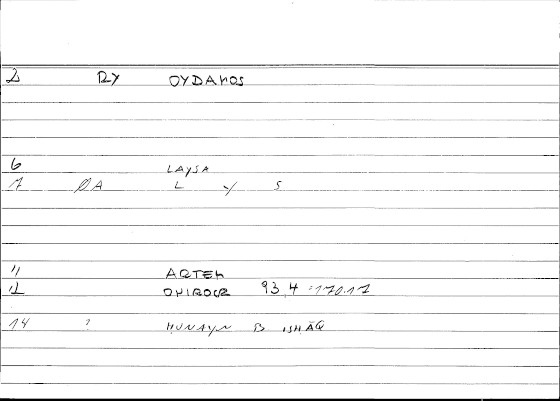 2 RY OYDAMOS
6 LAYSA
7 ØA L Y S
11 ARTEM
12 CHIROUR 93,4 = 170.17
14 ? HUNAYN B ISHĀQ